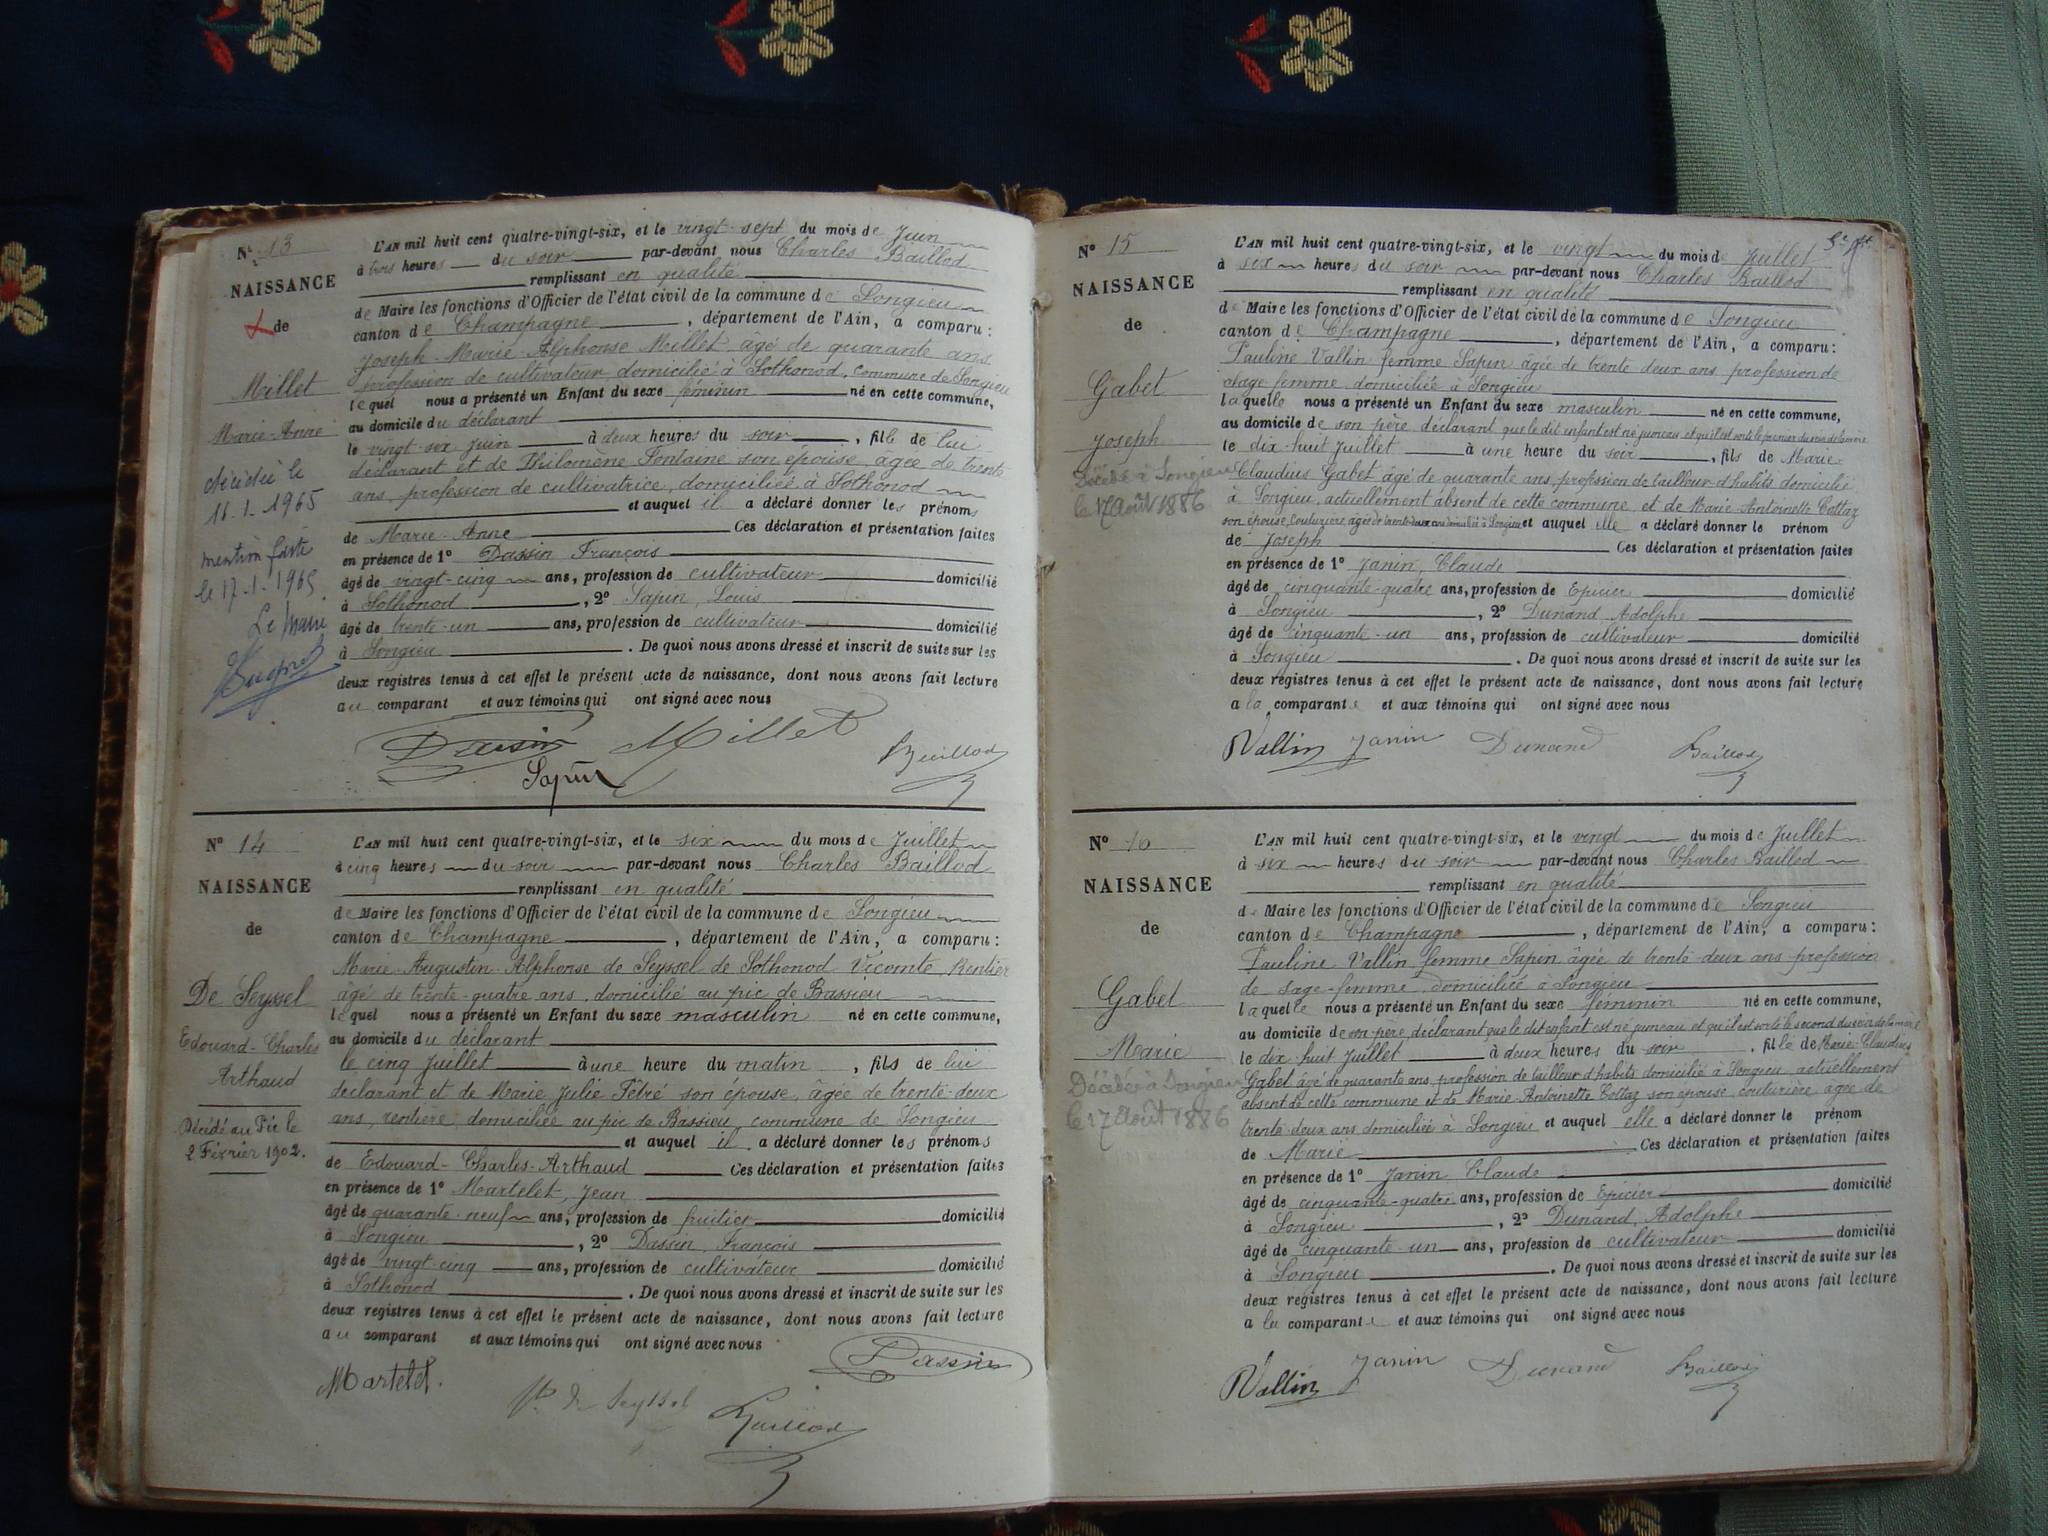 N° 13
NAISSANCE
de
Millet
Marie-Anne
décédée le
11-1-1965
mention faite
le 17-1-1965
Le Maire
L'AN mil huit cent quatre-vingt-six, et le vingt-sept du mois de Juin
à trois heures du soir par-devant nous Charles Baillod
remplissant en qualité
de Maire les fonctions d'Officier de l'état civil de la commune de Songieu
canton de Champagne, département de l'Ain, a comparu:
Joseph-Marie-Alphonse Millet âgé de quarante ans
profession de cultivateur domicilié à Sothonod, commune de Songieu
lequel nous a présenté un Enfant du sexe féminin né en cette commune,
au domicile du déclarant
le vingt-six Juin à deux heures du soir, fille de lui
déclarant et de Philomène Fontaine son épouse, âgée de trente
ans, profession de cultivatrice, domiciliée à Sothonod
et auquel il a déclaré donner les prénoms
de Marie-Anne Ces déclaration et présentation faites
en présence de 1° Dassin François
âgé de vingt-cinq ans, profession de cultivateur domicilié
à Sothonod, 2° Sapin, Louis
âgé de trente-un ans, profession de cultivateur domicilié
à Songieu. De quoi nous avons dressé et inscrit de suite sur les
deux registres tenus à cet effet le présent acte de naissance, dont nous avons fait lecture
au comparant et aux témoins qui ont signé avec nous
Dassin Millet Baillod
Sapin
N° 14
NAISSANCE
de
De Seyssel
Edouard-Charles
Arthaud
Décédé au Pic le
2 Février 1902.
L'AN mil huit cent quatre-vingt-six, et le six du mois de Juillet
à cinq heures du soir par-devant nous Charles Baillod
remplissant en qualité
de Maire les fonctions d'Officier de l'état civil de la commune de Songieu
canton de Champagne, département de l'Ain, a comparu:
Marie-Augustin-Alphonse de Seyssel de Sothonod Vicomte Rentier
âgé de trente-quatre ans, domicilié au pic de Bassieu
lequel nous a présenté un Enfant du sexe masculin né en cette commune,
au domicile du déclarant
le cinq Juillet à une heure du matin, fils de lui
déclarant et de Marie Julie Fêtré son épouse, âgée de trente-deux
ans, rentière, domiciliée au pic de Bassieu, commune de Songieu
et auquel il a déclaré donner les prénoms
de Edouard-Charles-Arthaud Ces déclaration et présentation faites
en présence de 1° Martelet, Jean
âgé de quarante-neuf ans, profession de fruitier domicilié
à Songieu, 2° Dassin, François
âgé de vingt-cinq ans, profession de cultivateur domicilié
à Sothonod. De quoi nous avons dressé et inscrit de suite sur les
deux registres tenus à cet effet le présent acte de naissance, dont nous avons fait lecture
au comparant et aux témoins qui ont signé avec nous
Dassin
Martelet. Vte de Seyssel Baillod
N° 15
NAISSANCE
de
Gabet
Joseph
Décédé à Songieu
le 17 Août 1886
L'AN mil huit cent quatre-vingt-six, et le vingt du mois de Juillet
à six heures du soir par-devant nous Charles Baillod
remplissant en qualité
de Maire les fonctions d'Officier de l'état civil de la commune de Songieu
canton de Champagne, département de l'Ain, a comparu:
Pauline Vallin femme Sapin âgée de trente deux ans profession de
sage femme domiciliée à Songieu
laquelle nous a présenté un Enfant du sexe masculin né en cette commune,
au domicile de son père déclarant que le dit enfant est né jumeau et qu'il est sorti le premier du sein de la mère
le dix-huit Juillet à une heure du soir, fils de Marie
Claudius Gabet âgé de quarante ans, profession de tailleur d'habits domicilié
à Songieu, actuellement absent de cette commune et de Marie Antoinette Cottaz
son épouse, Couturière âgée de trente deux ans domiciliée à Songieu et auquel elle a déclaré donner le prénom
de Joseph Ces déclaration et présentation faites
en présence de 1° Janin, Claude
âgé de cinquante-quatre ans, profession de Epicier domicilié
à Songieu, 2° Dunand, Adolphe
âgé de cinquante-un ans, profession de cultivateur domicilié
à Songieu. De quoi nous avons dressé et inscrit de suite sur les
deux registres tenus à cet effet le présent acte de naissance, dont nous avons fait lecture
a la comparante et aux témoins qui ont signé avec nous
Vallin Janin Dunand Baillod
N° 16
NAISSANCE
de
Gabet
Marie
Décédée à Songieu
le 17 Août 1886
L'AN mil huit cent quatre-vingt-six, et le vingt du mois de Juillet
à six heures du soir par-devant nous Charles Baillod
remplissant en qualité
de Maire les fonctions d'Officier de l'état civil de la commune de Songieu
canton de Champagne, département de l'Ain, a comparu:
Pauline Vallin femme Sapin âgée de trente deux ans profession
de sage-femme, domiciliée à Songieu
laquelle nous a présenté un Enfant du sexe féminin né en cette commune,
au domicile de son père, déclarant que le dit enfant est né jumeau et qu'il est sorti le second du sein de la mère
le dix-huit Juillet à deux heures du soir, fille de Marie-Claudius
Gabet âgé de quarante ans, profession de tailleur d'habits domicilié à Songieu, actuellement
absent de cette commune et de Marie-Antoinette Cottaz son épouse, couturière, âgée de
trente-deux ans domiciliée à Songieu et auquel elle a déclaré donner le prénom
de Marie Ces déclaration et présentation faites
en présence de 1° Janin Claude
âgé de cinquante-quatre ans, profession de Epicier domicilié
à Songieu, 2° Dunand, Adolphe
âgé de cinquante-un ans, profession de cultivateur domicilié
à Songieu. De quoi nous avons dressé et inscrit de suite sur les
deux registres tenus à cet effet le présent acte de naissance, dont nous avons fait lecture
a la comparante et aux témoins qui ont signé avec nous
Vallin Janin Dunand Baillod